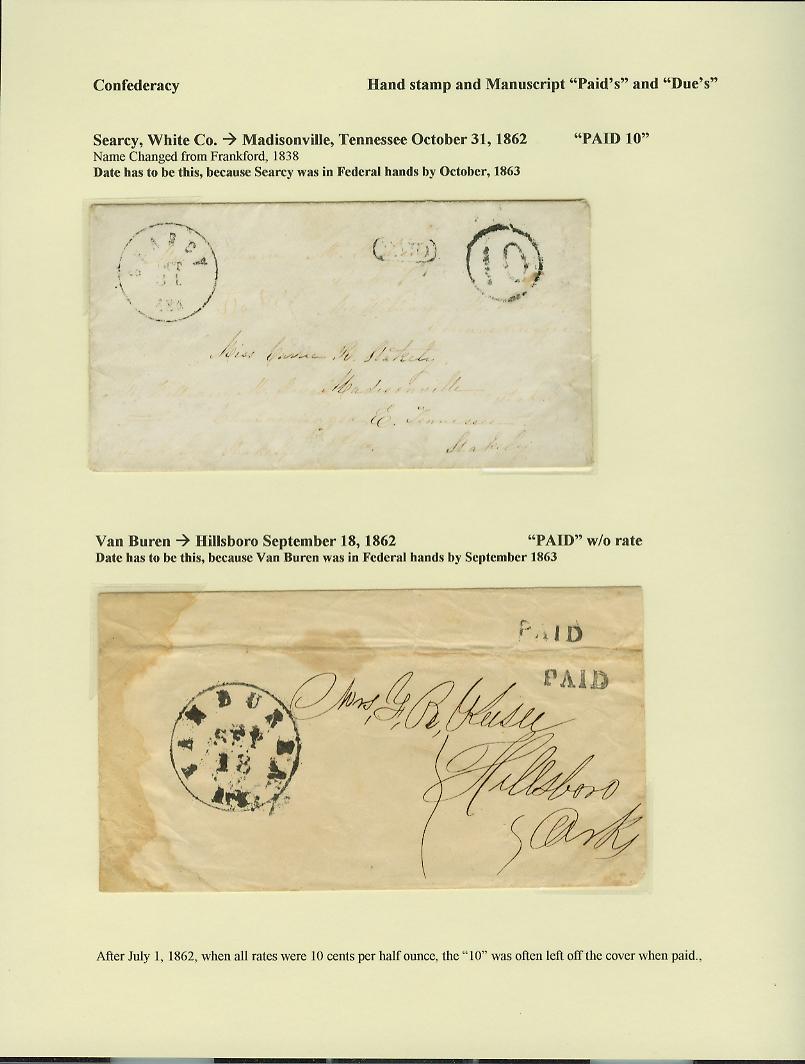 Confederacy Hand stamp and Manuscript “Paid's” and “Due's”
Searcy, White Co. → Madisonville, Tennessee October 31, 1862 “PAID 10”
Name Changed from Frankford, 1838
Date has to be this, because Searcy was in Federal hands by October, 1863
SEARCY
OCT
31
ARK
PAID
10
Miss Carrie R. Stakely
Madisonville
E. Tennessee
Stakely
Van Buren → Hillsboro September 18, 1862 “PAID” w/o rate
Date has to be this, because Van Buren was in Federal hands by September 1863
PAID
PAID
VAN BUREN
SEP
18
ARK
Mrs,
Hillsboro
Ark
After July 1, 1862, when all rates were 10 cents per half ounce, the “10” was often left off the cover when paid.,